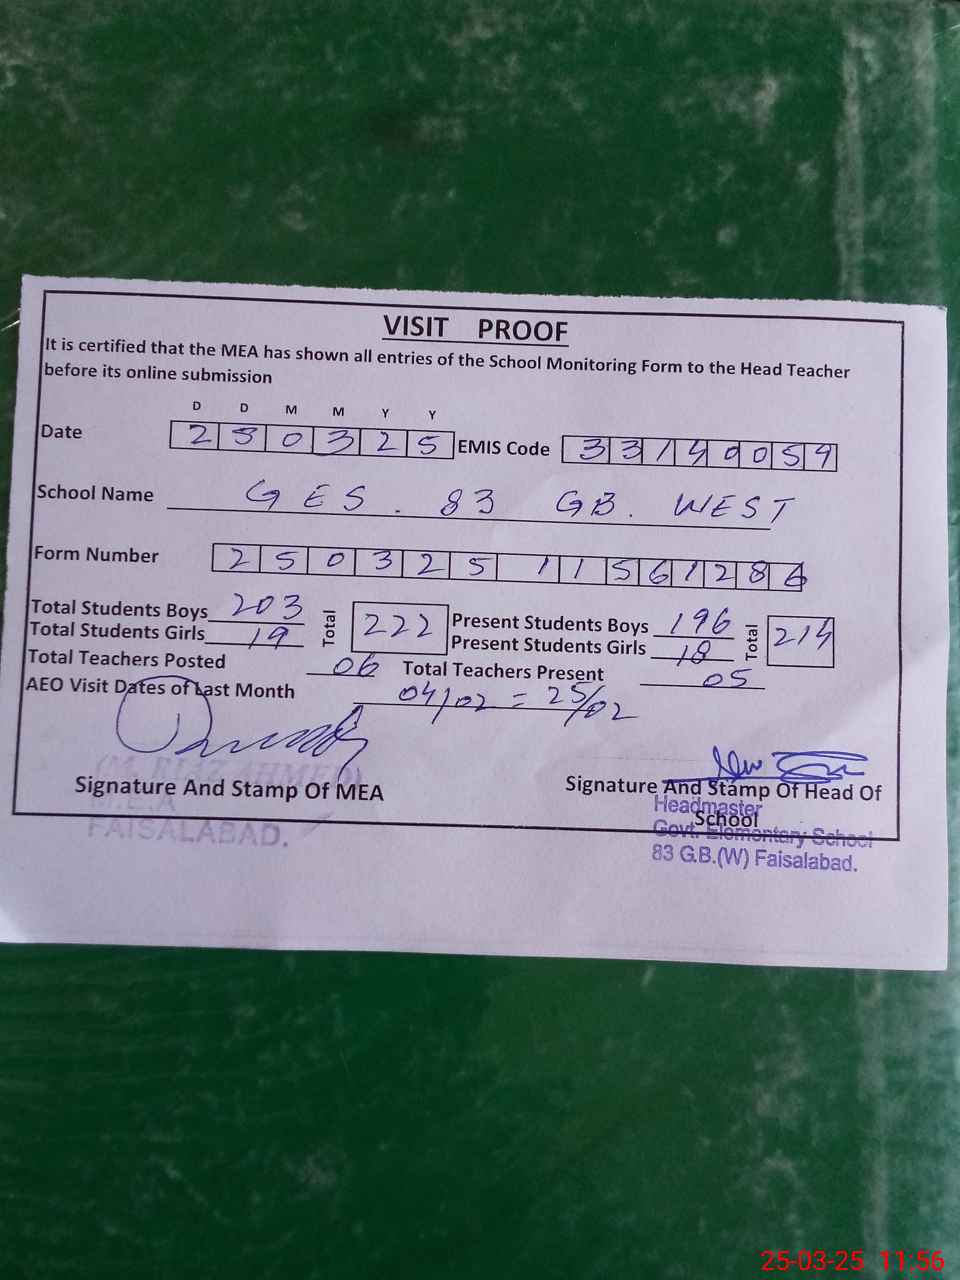 VISIT PROOF
It is certified that the MEA has shown all entries of the School Monitoring Form to the Head Teacher
before its online submission
D D M M Y Y
Date 250325 EMIS Code 33140059
School Name GES. 83 GB. WEST
Form Number 250325 11561286
Total Students Boys 203 Total 222 Present Students Boys 196 Total 214
Total Students Girls 19 Present Students Girls 18
Total Teachers Posted 06 Total Teachers Present 05
AEO Visit Dates of Last Month 04/02 = 25/02
(M. RIAZ AHMED)
Signature And Stamp Of MEA
M.E.A
FAISALABAD.
Signature And Stamp Of Head Of
School
Headmaster
Govt. Elementary School
83 G.B.(W) Faisalabad.
25-03-25 11:56